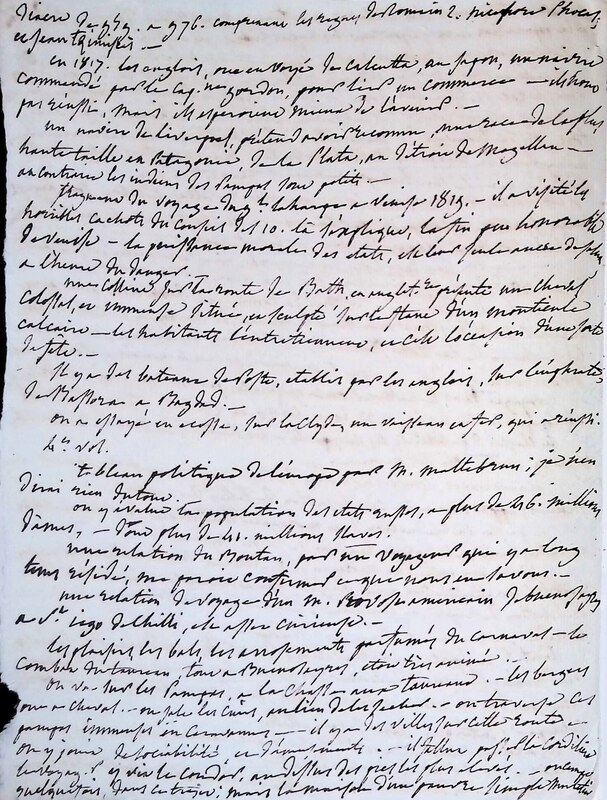 de 959. a 976. comprenant les regnes de Romain 2. nicephore Phocas,
et Jean
en 1817. les anglois, ont envoyé de calcutta, au Japon, un navire
commandé par le cap. gordon, pour lier un commerce — ils n'ont
pas réussi, mais ils esperent mieux de l'avenir. —
un navire de liverpool, prétend avoir reconnu, une race de la plus
haute taille en Patagonie, de la Plata, au détroit de Magellan —
au contraire les indiens des Pampas sont petits. —
fragment du voyage de a Venise 1819. — il a visité les
horribles cachots du conseil des 10. la la fin peu honorable
de Venise — la puissance morale des etats, est leur seule ancre de salut
a l'heure du danger.
une colline sur la route de Bath, en anglet. présente un cheval
colossal, en immense statue, et sculpté sur le flanc d'un monticule
calcaire — les habitants l'entretiennent, et c'est l'occasion d'une sorte
de fete. —
Il y a des bateaux de poste, etablis par les anglois, sur l'euphrate
de Bassora a Bagdad. —
on a essayé en ecosse, sur la Clyde, un vaisseau en fer, qui a réussi.
4e. vol.
tableau politique de l'europe par M. maltebrun ; je n'en
dirai rien du tout.
on y evalue la population des etats russes, a plus de 46. millions
d'ames, — dont plus de 41. millions slaves.
une relation du Boutan, par un voyageur qui y a long
tems résidé, me paroit confirmer ce que nous en savons. —
une relation de voyage d'un M. americain de buenosayres
a St. iago de Chilli, est assez curieuse. —
les plaisirs, les bals, les arrosements parfumés du carnaval — le
combat du taureau tout a Buenosayres, est très animé. —
on va sur les Pampas, a la chasse aux taureaux. — les bergers
sont a cheval. — on sale les cuirs, au lieu de les secher. — on traverse ces
pampas immenses en caravannes — il y a des villes sur cette route —
on y jouit de sociabilité et d'amusements. — il fallut passer la Cordiliere
le voyag. y vit le condor, au dessus des pics les plus elevés. —
quelquefois, dans ce trajet ; mais la maison d'une pauvre